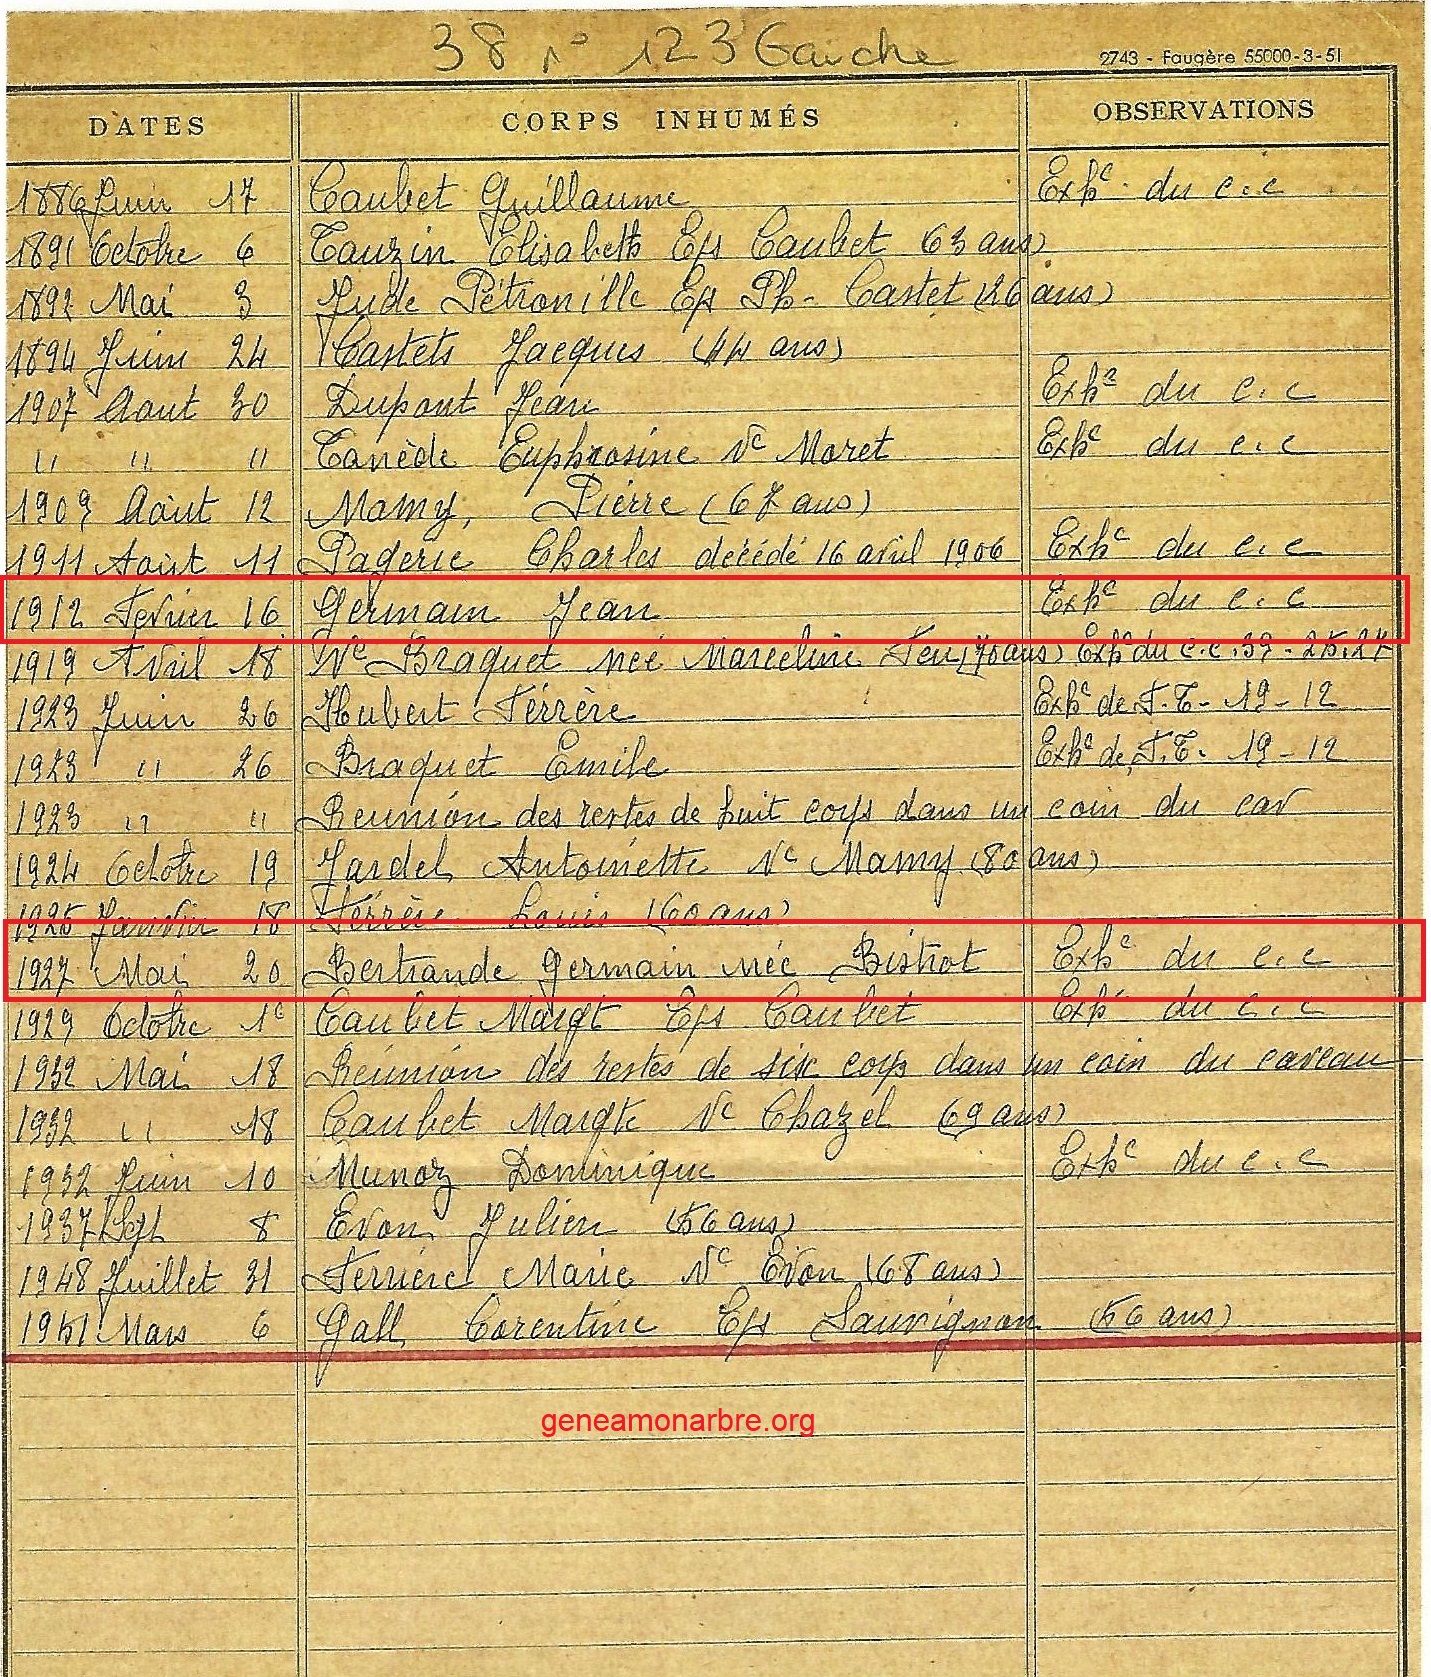 38 n° 123 Gauche
2743 - Faugère 55000-3-51
DATES CORPS INHUMÉS OBSERVATIONS
1886 Juin 17 Caubet Guillaume Exhᵉ du c.c
1891 Octobre 6 Tauzin Elisabeth Eps Caubet (63 ans)
1892 Mai 3 Jude Pétronille Eps Ph- Castet (26 ans)
1894 Juin 24 Castets Jacques (44 ans)
1907 Aout 30 Dupont Jean Exhᵉ du c.c
" " " Tanède Euphrosine Vᵉ Moret Exhᵉ du c.c
1909 Août 12 Mamy, Pierre (67 ans)
1911 Août 11 Pagerie Charles décédé 16 avril 1906 Exhᵉ du c.c
1912 Fevrier 16 Germain Jean Exhᵉ du c.c
1919 Avril 18 Vᵉ Braquet née Marceline Feu (70 ans) Exhᵉ du c.c. 39 - 25.27
1923 Juin 26 Hubert Férrère Exhᵉ de T.T- 19-12
1923 " 26 Braquet Emile Exhᵉ de T.T. 19-12
1923 " " Reunion des restes de huit corps dans un coin du cav
1924 Octobre 19 Jardel Antoinette Vᵉ Mamy (80 ans)
1925 Janvier 18 Férrère Louis (60 ans)
1927 Mai 20 Bertrande Germain née Bistrot Exhᵉ du c.c
1929 Octobre 1ᵉ Caubet Margt Eps Caubet Exhᵉ du c.c
1932 Mai 18 Réunion des restes de six corps dans un coin du caveau
1932 " 18 Caubet Margte Vᵉ Chazel (69 ans)
1932 Juin 10 Munoz Dominique Exhᵉ du c.c
1937 Sept 8 Evon Julien (56 ans)
1948 Juillet 31 Ferrière Marie Vᵉ Evon (68 ans)
1951 Mars 6 Gall Corentine Eps Sauvignon (56 ans)
geneamonarbre.org